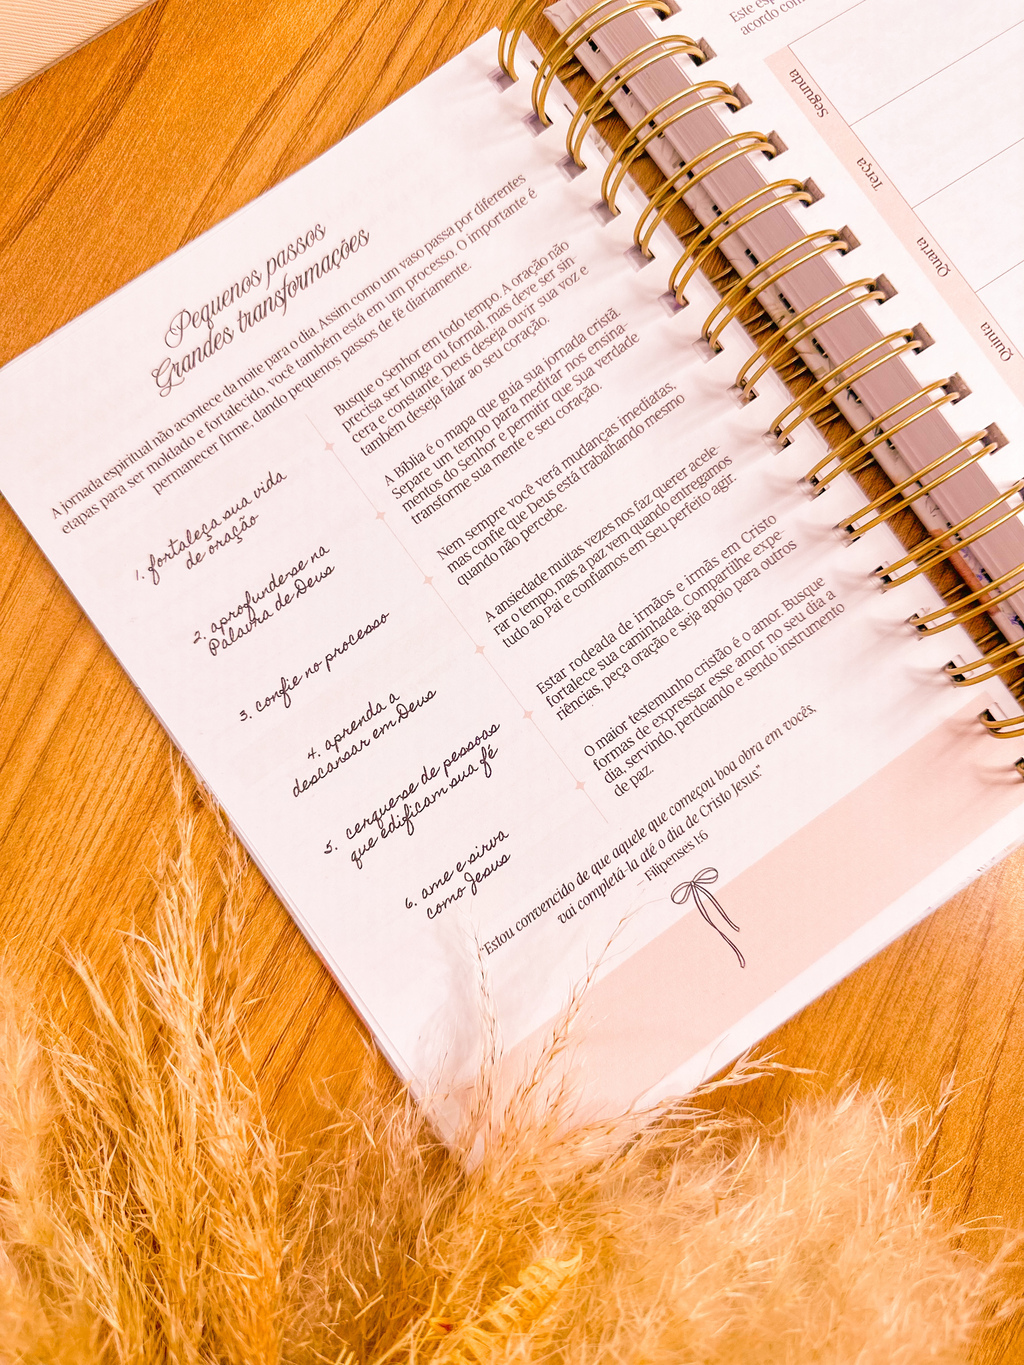 Pequenos passos
Grandes transformações
A jornada espiritual não acontece da noite para o dia. Assim como um vaso passa por diferentes
etapas para ser moldado e fortalecido, você também está em um processo. O importante é
permanecer firme, dando pequenos passos de fé diariamente.
1. fortaleça sua vida
de oração
Busque o Senhor em todo tempo. A oração não
precisa ser longa ou formal, mas deve ser sin-
cera e constante. Deus deseja ouvir sua voz e
também deseja falar ao seu coração.
2. aprofunde-se na
Palavra de Deus
A Bíblia é o mapa que guia sua jornada cristã.
Separe um tempo para meditar nos ensina-
mentos do Senhor e permitir que Sua verdade
transforme sua mente e seu coração.
3. confie no processo
Nem sempre você verá mudanças imediatas,
mas confie que Deus está trabalhando mesmo
quando não percebe.
4. aprenda a
descansar em Deus
A ansiedade muitas vezes nos faz querer acele-
rar o tempo, mas a paz vem quando entregamos
tudo ao Pai e confiamos em Seu perfeito agir.
5. cerque-se de pessoas
que edificam sua fé
Estar rodeada de irmãos e irmãs em Cristo
fortalece sua caminhada. Compartilhe expe-
riências, peça oração e seja apoio para outros
6. ame e sirva
como Jesus
O maior testemunho cristão é o amor. Busque
formas de expressar esse amor no seu dia a
dia, servindo, perdoando e sendo instrumento
de paz.
"Estou convencido de que aquele que começou boa obra em vocês,
vai completá-la até o dia de Cristo Jesus."
Filipenses 1:6
Este
acordo com
Segunda
Terça
Quarta
Quinta